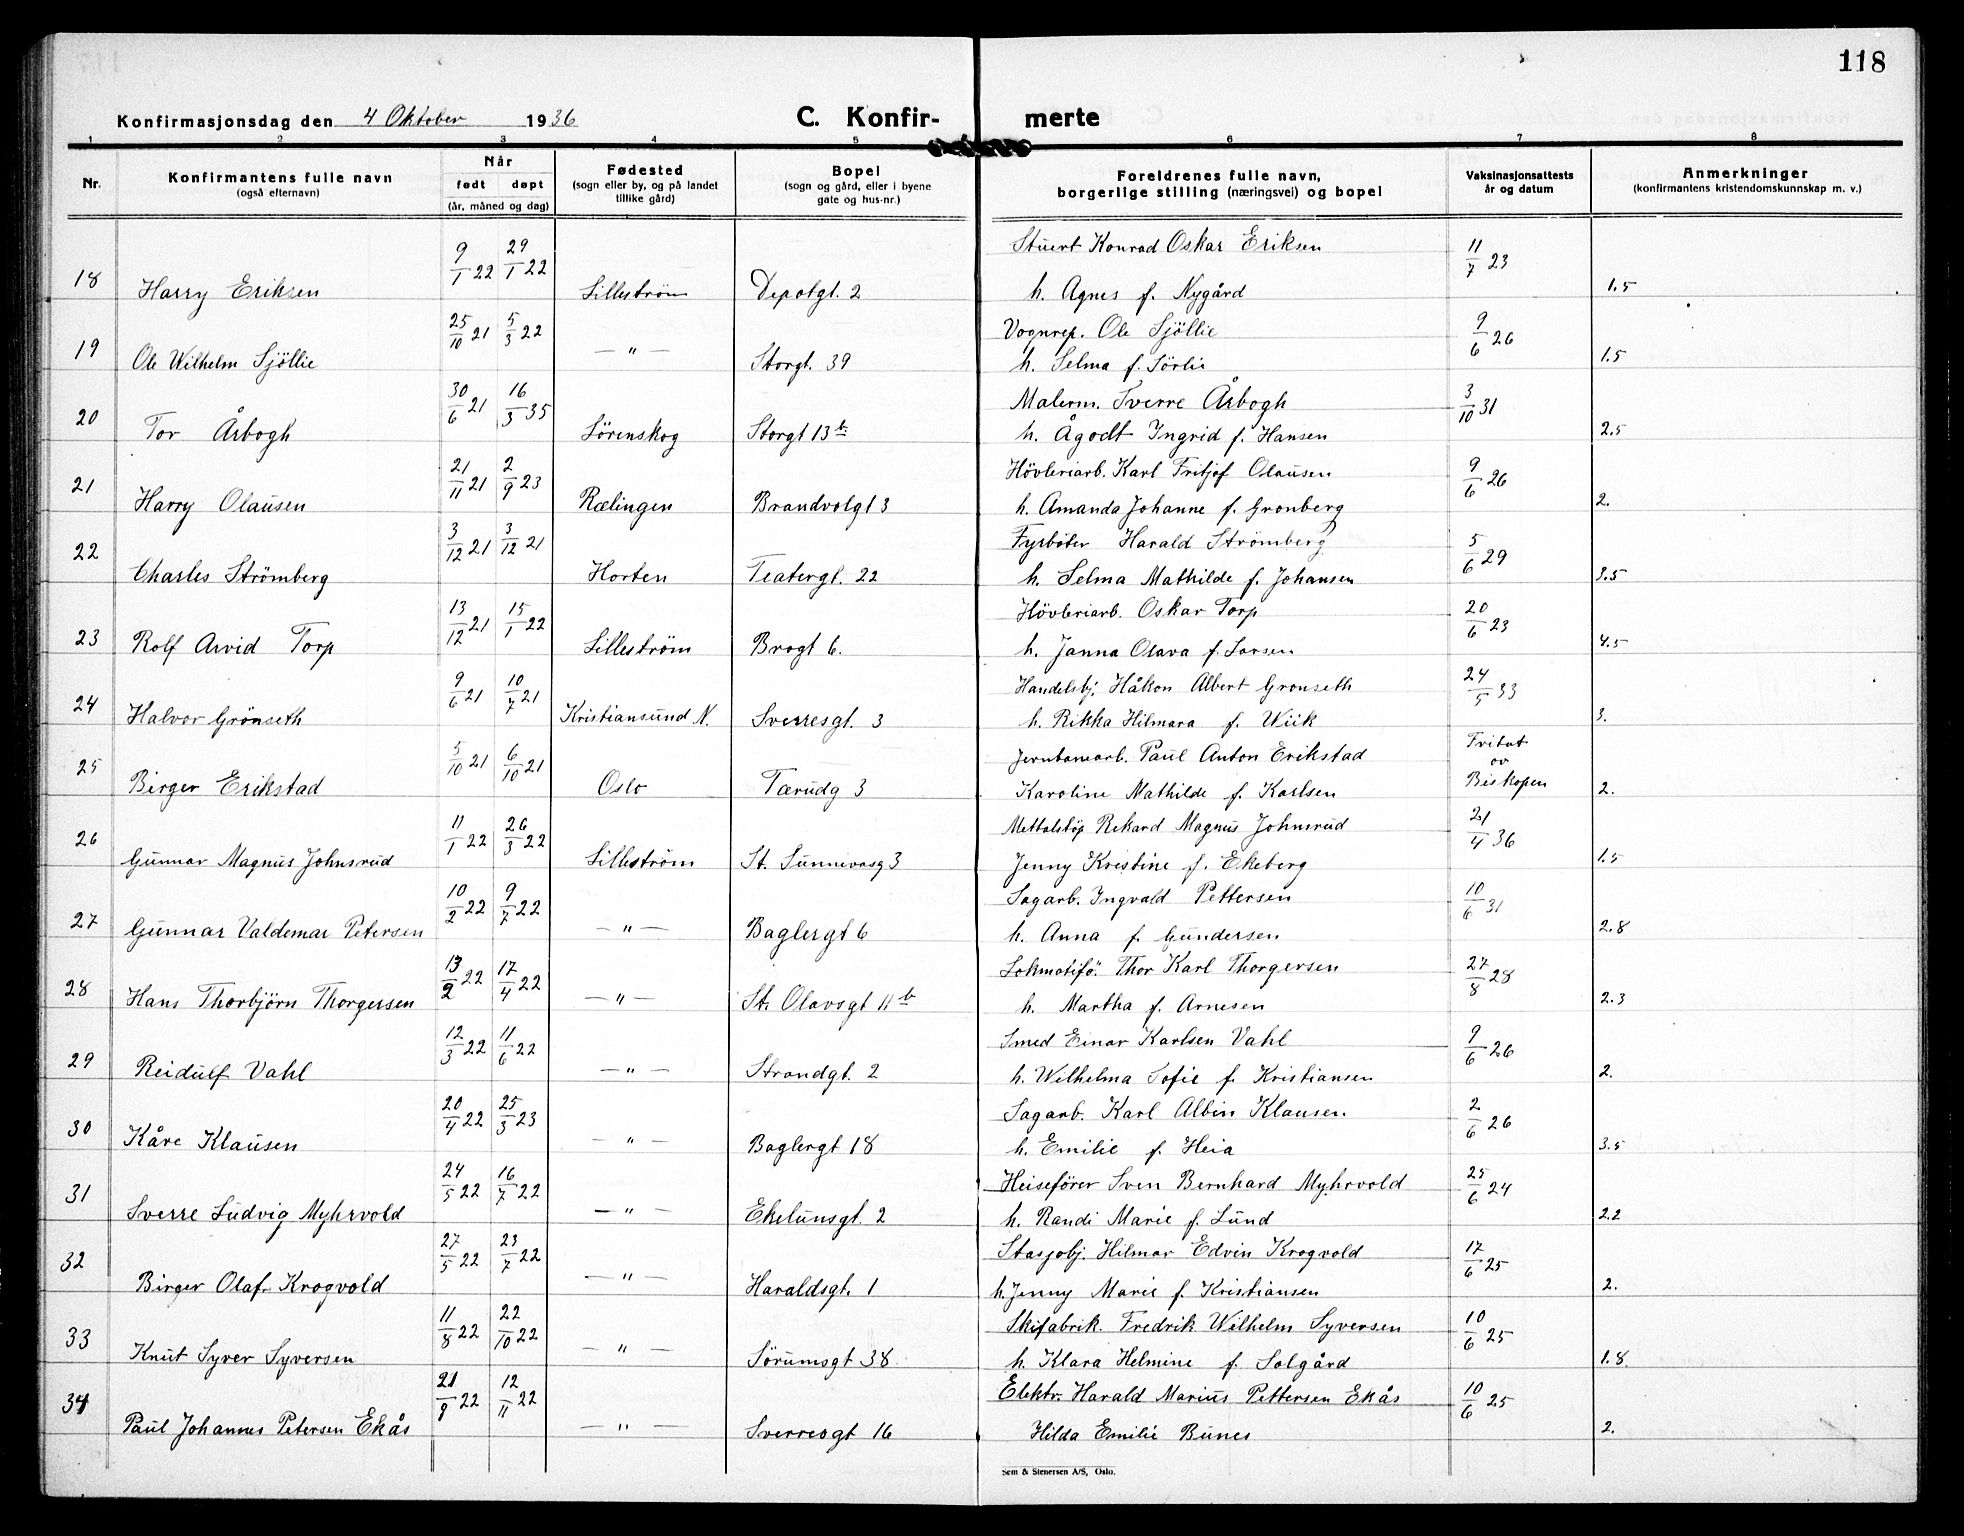 118
Konfirmasjonsdag den 4 Oktober 1936 C. Konfir- merte
1 2 3 4 5 6 7 8
Nr. Konfirmantens fulle navn (også efternavn) Når født døpt (år, måned og dag) Fødested (sogn eller by, og på landet tillike gård) Bopel (sogn og gård, eller i byene gate og hus-nr.) Foreldrenes fulle navn, borgerlige stilling (næringsvei) og bopel Vaksinasjonsattests år og datum Anmerkninger (konfirmantens kristendomskunnskap m. v.)
9/1 22 29/1 22 Stuert Konrad Oskar Eriksen 11/7 23
18 Harry Eriksen Lilleström Depotgt. 2 h. Agnes f. Nygård 1.5
25/10 21 5/3 22 Vognrep. Ole Sjöllie 9/6 26
19 Ole Wilhelm Sjöllie — " — Storgt. 39 h. Selma f. Sörlie 1.5
30/6 21 16/3 35 Malerm. Sverre Årbogh 3/10 31
20 Tor Årbogh Lörenskog Storgt 13b h. Ågodt Ingrid f. Hansen 2.5
21/11 21 2/9 23 Hövleriarb. Karl Fritjof Olausen 9/6 26
21 Harry Olausen Rælingen Brandvolgt 3 h. Amanda Johanne f. Gronberg 2.
3/12 21 3/12 21 Fyrböter Harald Strömberg 5/6 29
22 Charles Strömberg Horten Teatergt. 22 h. Selma Mathilde f. Johansen 3.5
13/12 21 15/1 22 Hövleriarb. Oskar Torp 20/6 23
23 Rolf Arvid Torp Lilleström Brogt 6. h. Janna Olava f. Larsen 4.5
9/6 21 10/7 21 Handelsbj. Håkon Albert Gronseth 24/5 33
24 Halvor Grönseth Kristiansund N. Sverresgt. 3 h. Rikka Hilmara f. Wiik 3.
5/10 21 6/10 21 Jernbanearb. Paul Anton Erikstad Fritat av Biskopen
25 Birger Erikstad Oslo Tærudg 3 Karoline Mathilde f. Karlsen 2.
11/1 22 26/3 22 Mettalstöp Rikard Magnus Johnsrud 21/4 36
26 Gunnar Magnus Johnsrud Lilleström St. Sunnivasg 3 Jenny Kristine f. Ekeberg 1.5
10/2 22 9/7 22 Sagarb. Ingvald Pettersen 10/6 31
27 Gunnar Valdemar Petersen — " — Baglergt 6 h. Anna f. Gundersen 2.8
13/2 22 17/4 22 Lokmotifö. Thor Karl Thorgersen 27/8 28
28 Hans Thorbjörn Thorgersen — " — St. Olavsgt 11b h. Martha f. Arnesen 2.3
12/3 22 11/6 22 Smed Einar Karlsen Vahl 9/6 26
29 Reidulf Vahl — " — Strandgt. 2 h. Wilhelma Sofie f. Kristiansen 2.
20/4 22 25/3 23 Sagarb. Karl Albin Klausen 2/6 26
30 Kåre Klausen — " — Baglergt 18 h. Emilie f. Heia 3.5
24/5 22 16/7 22 Heisefører Sven Bernhard Myhrvold 25/6 24
31 Sverre Ludvig Myhrvold — " — Ekelunsgt. 2 h. Randi Marie f. Lund 2.2
27/5 22 23/7 22 Stasjobj. Hilmar Edvin Krogvold 17/6 25
32 Birger Olaf Krogvold — " — Haraldsgt. 1 h. Jenny Marie f. Kristiansen 2.
11/8 22 22/10 22 Skifabrik. Fredrik Wilhelm Syversen 10/6 25
33 Knut Syver Syversen — " — Sörumsgt 38 h. Klara Helmine f. Solgård 1.8.
21/9 22 12/11 22 Elektr. Harald Marius Pettersen Ekås 10/6 25
34 Paul Johannes Petersen Ekås — " — Sverresgt 16 Hilda Emilie Bunes 2.
Sem & Stenersen A/S, Oslo.